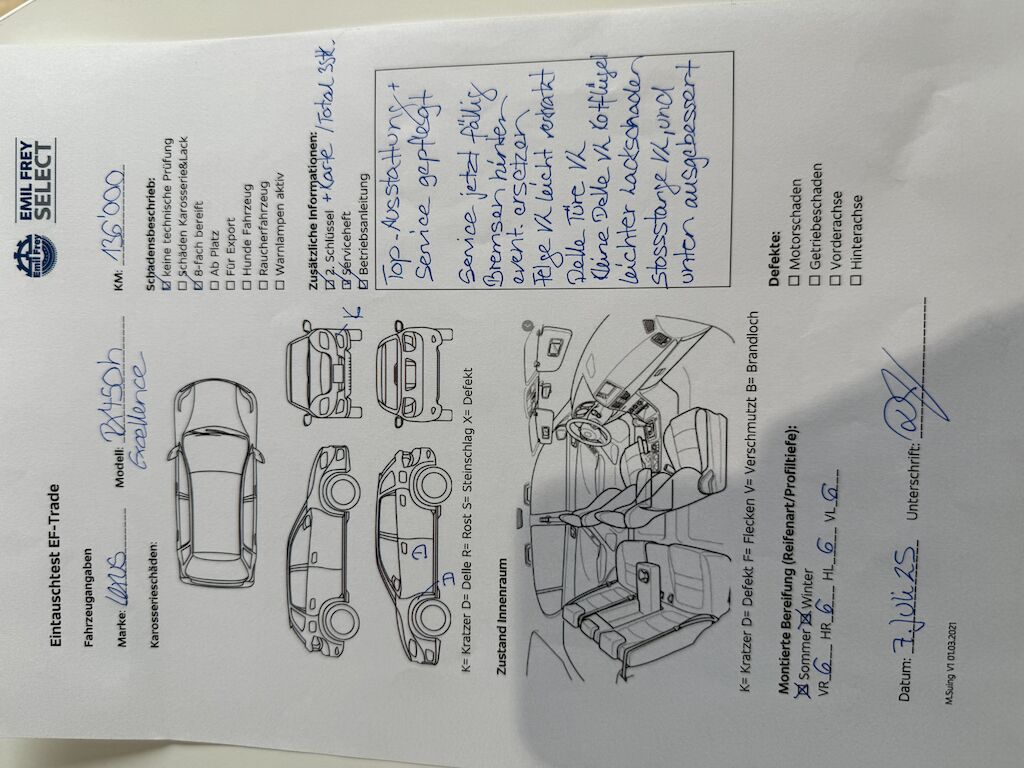 Eintauschtest EF-Trade
EMIL FREY
SELECT
Emil Frey
Fahrzeugangaben
Marke: Lexus Modell: RX450h KM: 136'000
Excellence
Karosserieschäden:
K
D
D
K= Kratzer D= Delle R= Rost S= Steinschlag X= Defekt
Schadensbeschrieb:
☑ keine technische Prüfung
☐ Schäden Karosserie&Lack
☑ 8-fach bereift
☐ Ab Platz
☐ Für Export
☐ Hunde Fahrzeug
☐ Raucherfahrzeug
☐ Warnlampen aktiv
Zusätzliche Informationen:
☑ 2. Schlüssel + Karte / Total 3Stk.
☑ Serviceheft
☑ Betriebsanleitung
Top-Ausstattung +
Service gepflegt
Service jetzt fällig
Bremsen hinten
event. ersetzen
Felge VR leicht verkratzt
Delle Türe VR
Kleine Delle VR Kotflügel
leichter Lackschaden
Stossstange VR, und
unten ausgebessert
Zustand Innenraum
K= Kratzer D= Defekt F= Flecken V= Verschmutzt B= Brandloch
Montierte Bereifung (Reifenart/Profiltiefe):
☒ Sommer ☒ Winter
VR 6 HR 6 HL 6 VL 6
Defekte:
☐ Motorschaden
☐ Getriebeschaden
☐ Vorderachse
☐ Hinterachse
Datum: 3. Juli 25 Unterschrift:
M.Suing V1 01.03.2021